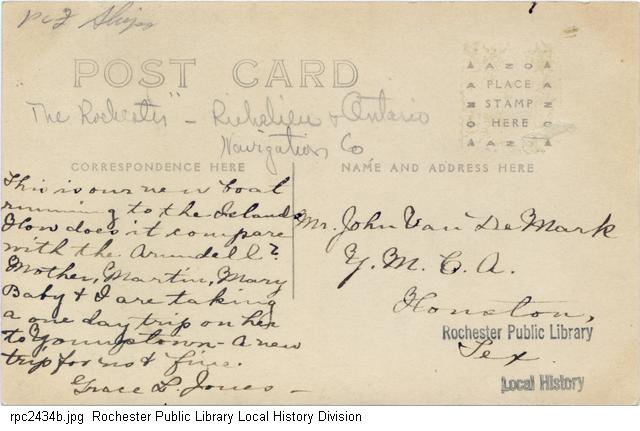 pc2 Ships
POST CARD
AZO
PLACE
STAMP
HERE
AZO
"The Rochester" - Richelieu & Ontario
Navigation Co
CORRESPONDENCE HERE
NAME AND ADDRESS HERE
This is our new boat
running to the Islands
How does it compare
with the Arundell?
Mother, Martin, Mary
Baby & I are taking
a one day trip on her
to Youngstown - a new
trip for us & fine.
Grace L. Jones -
Mr. John Van De Mark
Y. M. C. A.
Houston,
Tex.
Rochester Public Library
Local History
rpc2434b.jpg Rochester Public Library Local History Division